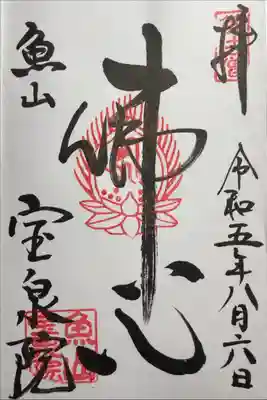 拝
令和五年八月六日
佛心
魚山
宝泉院